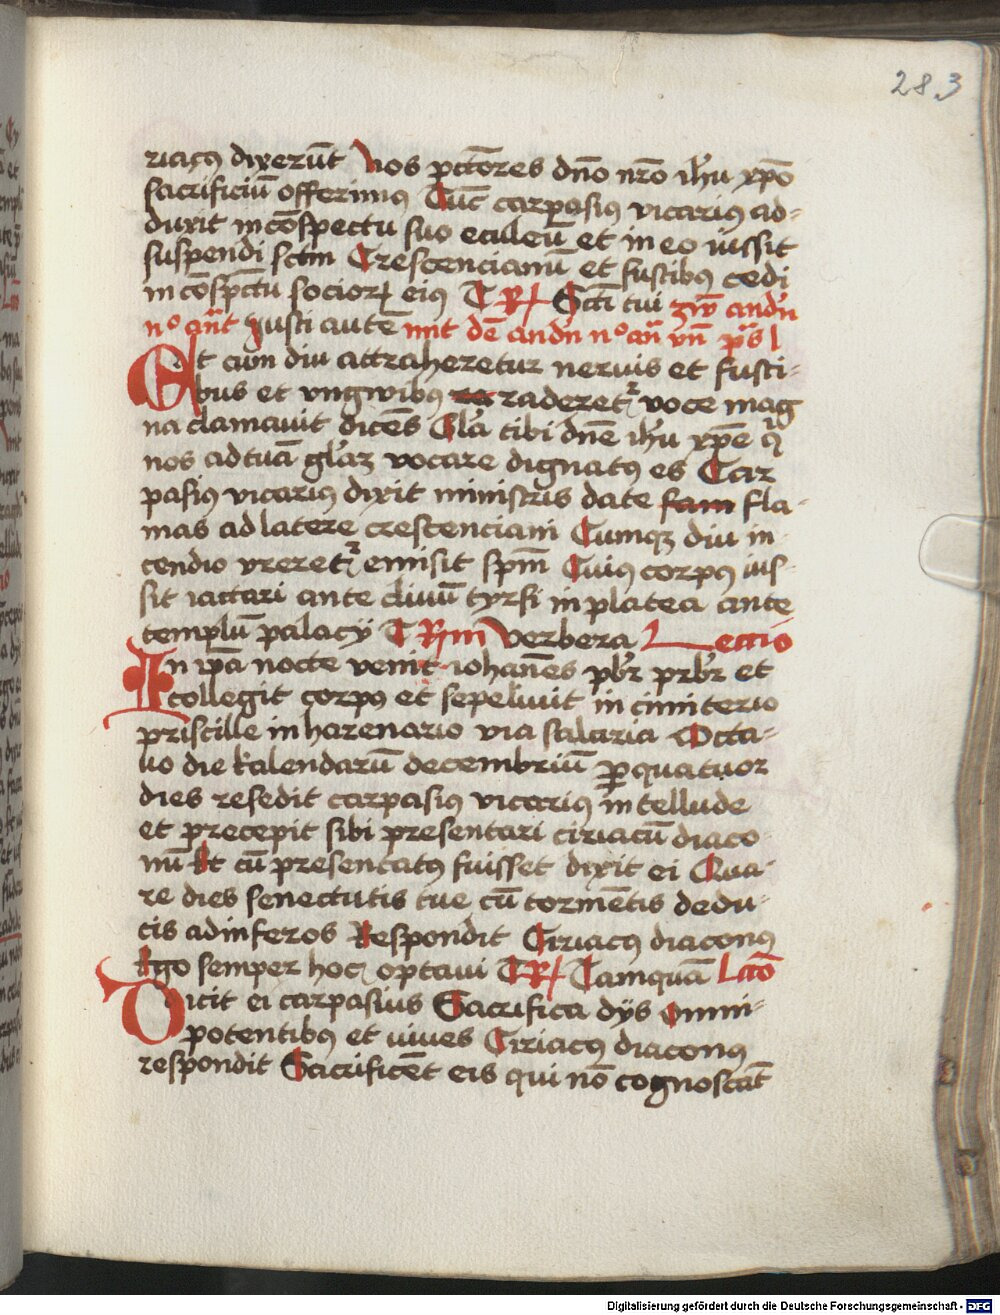 283
riacꝰ dixerūt Nos pctōres dn̄o nr̄o ih̄u xp̄o
sacrificiū offerimꝰ Tūc carpasiꝰ vicariꝰ ad-
duxit in cōspectu suo eculeū et in eo iussit
suspendi sctm̄ Crescencianū et fustibꝰ cedi
in cōspc̄tu socioꝝ eiꝰ Scti tui
Iusti autē
Et cum diu attraheretur neruis et fusti-
bus et vngwibꝰ raderetr̄ voce mag
na clamauit dicēs Gl̄a tibi dn̄e ih̄u xp̄e q̄
nos ad tuā gl̄aꝫ vocare dignatꝰ es Car
pasiꝰ vicariꝰ dixit ministris date fam fla-
mas ad latere crescenciani Cumqꝫ diu in-
cendio vreretr̄ emisit spm̄ Cuiꝰ corpꝰ ius-
sit iactari ante cliuū tyrsi in platea ante
templū palacij Verbera Lectio
In ip̄a nocte venit iohan̄es pb̄r prb̄r et
collegit corpꝰ et sepeliuit in cimiterio
priscille in harenario via salaria Octa-
uo die kalendarū decembriū Pꝰ quatuor
dies resedit carpasiꝰ vicariꝰ in tellude
et precepit sibi presentari ciriacū diaco
nū Et cū presentatꝰ fuisset dixit ei Qua-
re dies senectutis tue cū tormētis dedu-
cis ad inferos Respondit Ciriacꝰ diaconꝰ
Ego semper hoc optaui Tamquā Lcō
Dicit ei carpasius Sacrifica dijs omni-
potentibꝰ et viues Ciriacꝰ diaconꝰ
respondit Sacrificēt eis qui nō cognoscāt
Digitalisierung gefördert durch die Deutsche Forschungsgemeinschaft - DFG